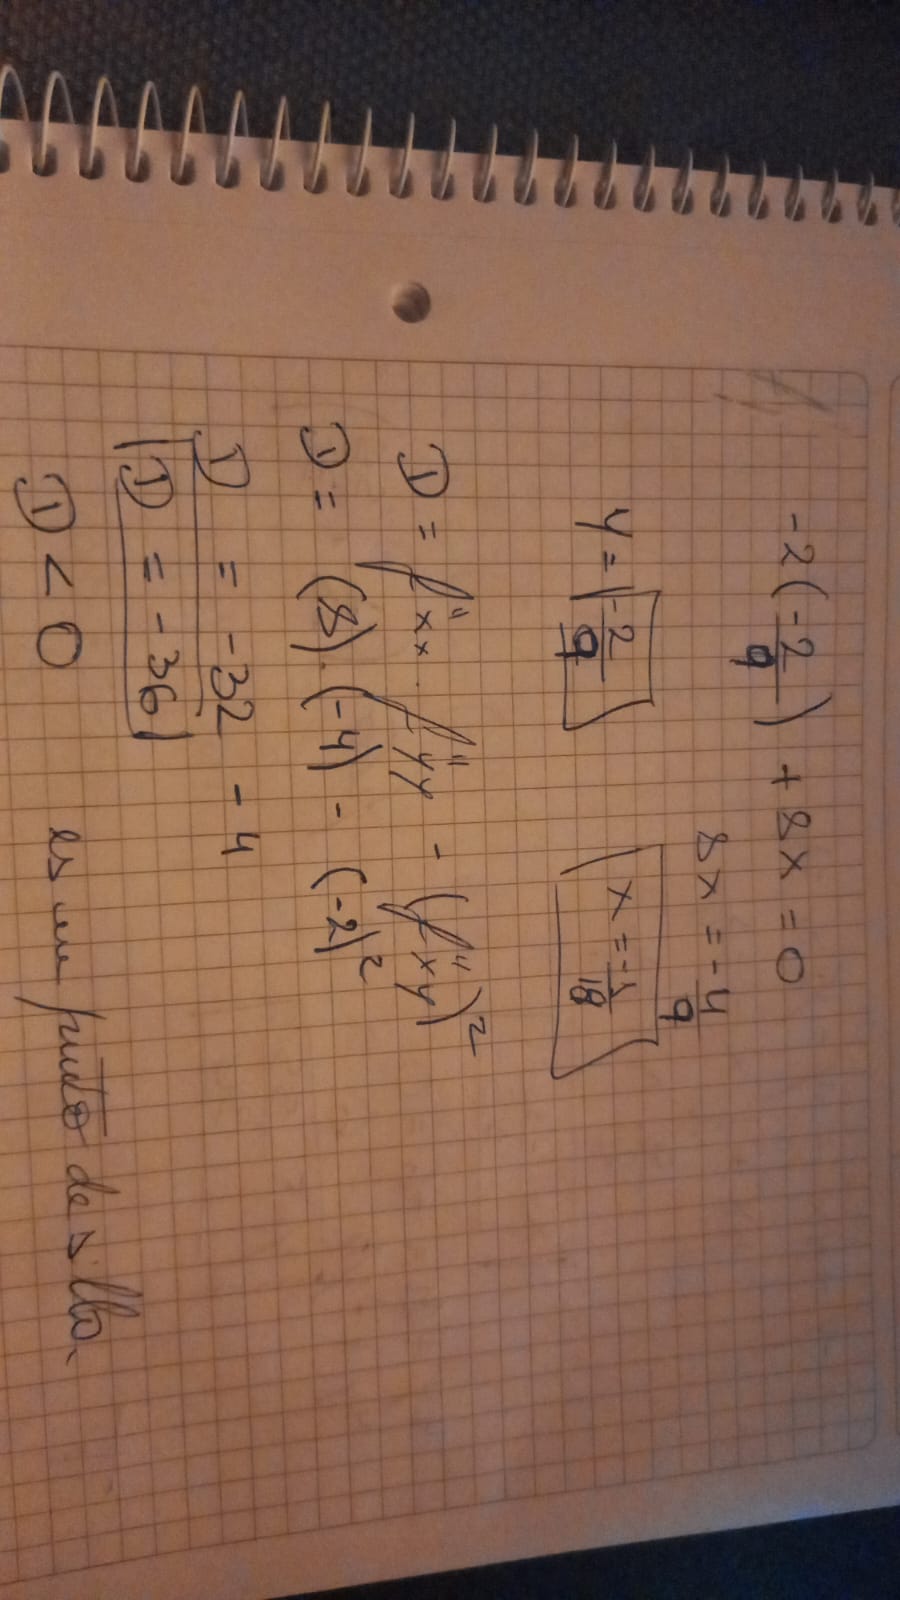 -2(-2/9) + 8x = 0
8x = -4/9
y = -2/9
x = -1/18
D = f''xx . f''yy - (f''xy)²
D = (8).(-4) - (-2)²
D = -32 - 4
D = -36
D < 0 es un punto de silla